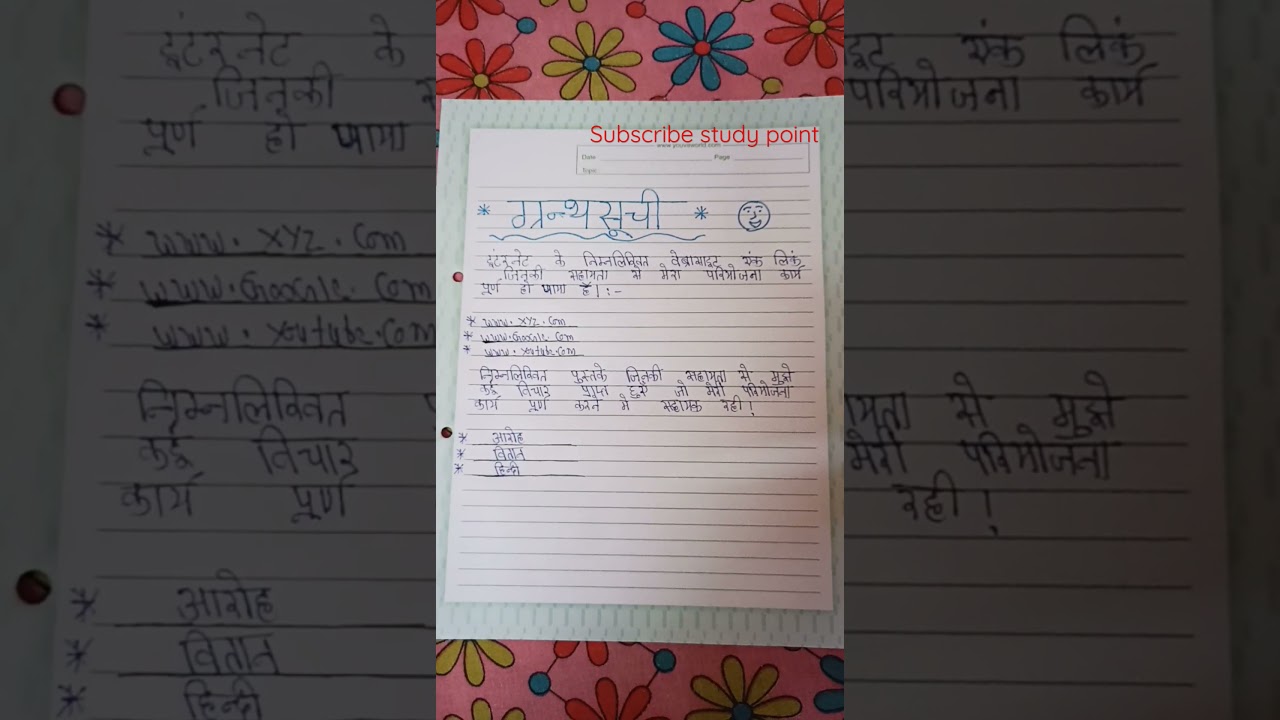 Subscribe study point
www.youvaworld.com
Date
Page
Topic
* ग्रन्थसूची *
इंटरनेट के निम्नलिखित वेबसाइट एंक लिंक
जिनकी सहायता से मेरा परियोजना कार्य
पूर्ण हो पाया है।:-
* www.xyz.com
* www.Google.com
* www.youtube.com
निम्नलिखित पुस्तके जिनकी सहायता से मुझे
कई विचार प्राप्त हुए जो मेरी परियोजना
कार्य पूर्ण करने मे सहायक रही!
* आरोह
* वितान
* हिन्दी